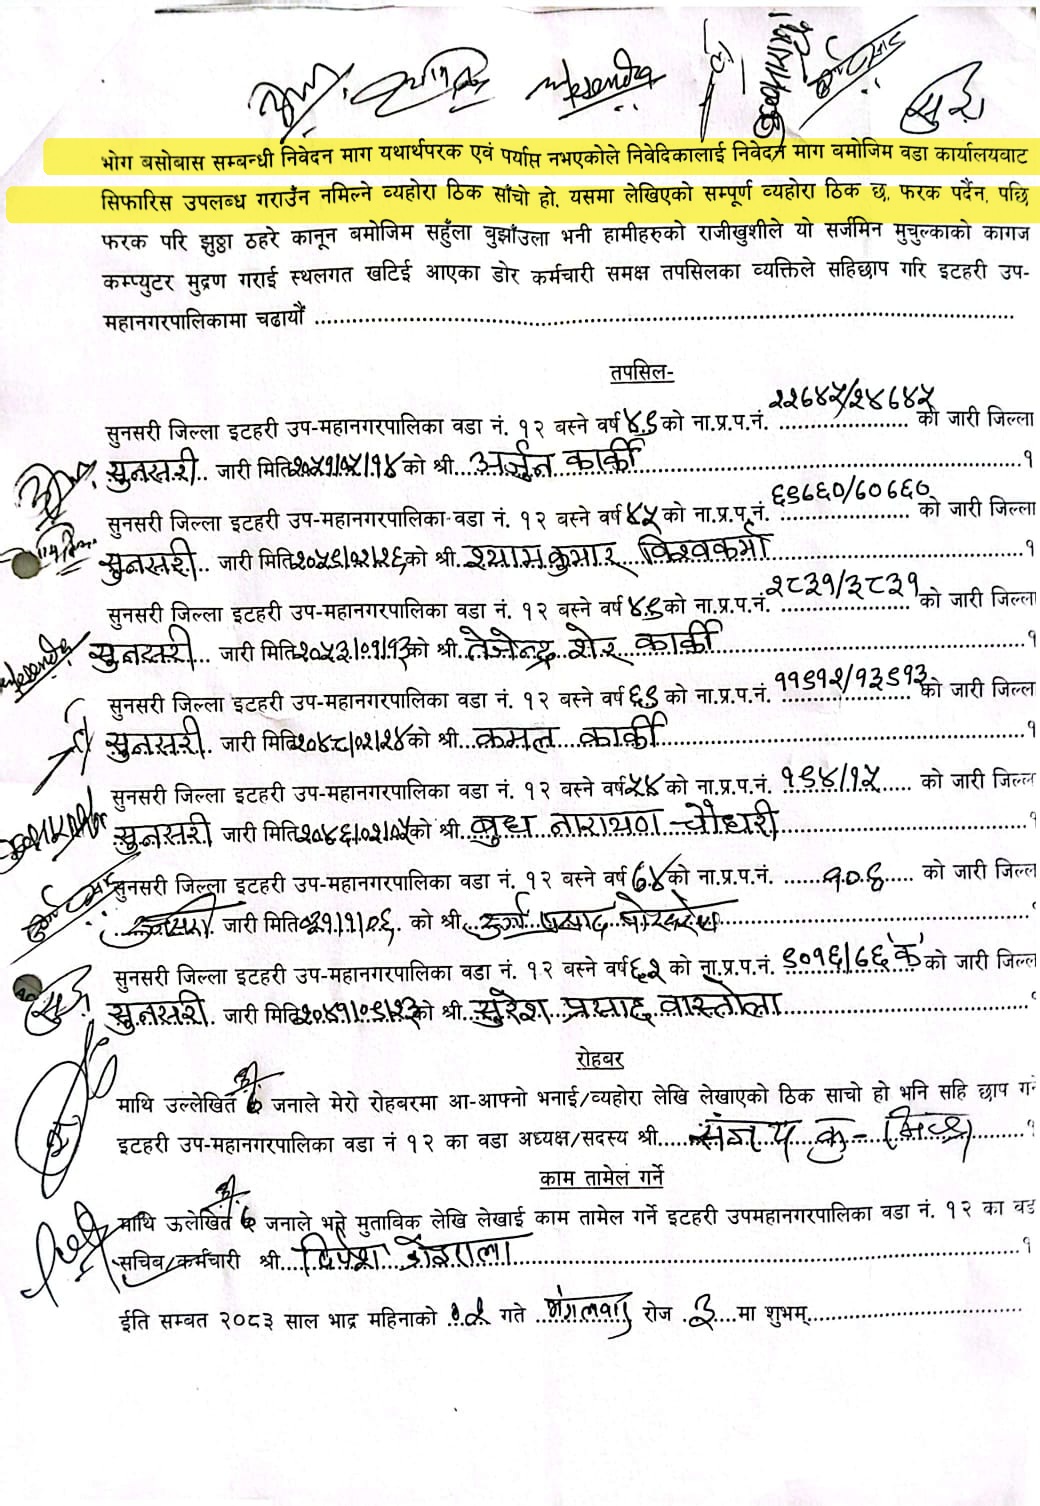 भोग बसोबास सम्बन्धी निवेदन माग यथार्थपरक एवं पर्याप्त नभएकोले निवेदिकालाई निवेदन माग बमोजिम वडा कार्यालयवाट
सिफारिस उपलब्ध गराउँन नमिल्ने व्यहोरा ठिक साँचो हो, यसमा लेखिएको सम्पूर्ण व्यहोरा ठिक छ, फरक पर्दैन, पछि
फरक परि झुठ्ठा ठहरे कानून बमोजिम सहुँला बुझाँउला भनी हामीहरुको राजीखुशीले यो सर्जमिन मुचुल्काको कागज
कम्प्युटर मुद्रण गराई स्थलगत खटिई आएका डोर कर्मचारी समक्ष तपसिलका व्यक्तिले सहिछाप गरि इटहरी उप-
महानगरपालिकामा चढायौं
तपसिल-
सुनसरी जिल्ला इटहरी उप-महानगरपालिका वडा नं. १२ बस्ने वर्ष ४९ को ना.प्र.प.नं. २२६४५/२४६४५ को जारी जिल्ला
सुनसरी जारी मिति २०५१/०५/१४ को श्री अर्जुन कार्की १
सुनसरी जिल्ला इटहरी उप-महानगरपालिका वडा नं. १२ बस्ने वर्ष ४५ को ना.प्र.प.नं. ६९८६०/७०८६० को जारी जिल्ला
सुनसरी जारी मिति २०५९/०२/२६ को श्री श्यामकुमार विश्वकर्मा १
सुनसरी जिल्ला इटहरी उप-महानगरपालिका वडा नं. १२ बस्ने वर्ष ४९ को ना.प्र.प.नं. २८३१/३८३१ को जारी जिल्ला
सुनसरी जारी मिति २०५३/०१/१३ को श्री तेजेन्द्र शेर कार्की १
सुनसरी जिल्ला इटहरी उप-महानगरपालिका वडा नं. १२ बस्ने वर्ष ६९ को ना.प्र.प.नं. ११९१२/१३९१३ को जारी जिल्ला
सुनसरी जारी मिति २०४८/०२/२४ को श्री कमल कार्की १
सुनसरी जिल्ला इटहरी उप-महानगरपालिका वडा नं. १२ बस्ने वर्ष ५४ को ना.प्र.प.नं. १९४/१५ को जारी जिल्ल
सुनसरी जारी मिति २०४६/०२/०५ को श्री बुध नारायण चौधरी १
सुनसरी जिल्ला इटहरी उप-महानगरपालिका वडा नं. १२ बस्ने वर्ष ७४ को ना.प्र.प.नं. १०६ को जारी जिल्ल
सुनसरी जारी मिति को श्री दुर्गा प्रसाद
सुनसरी जिल्ला इटहरी उप-महानगरपालिका वडा नं. १२ बस्ने वर्ष ६२ को ना.प्र.प.नं. ९०१६/७६ 'क' को जारी जिल्ल
सुनसरी जारी मिति २०४१/०९/२३ को श्री सुरेश प्रसाद वास्तोला
रोहबर
माथि उल्लेखित ७ जनाले मेरो रोहबरमा आ-आफ्नो भनाई/व्यहोरा लेखि लेखाएको ठिक साचो हो भनि सहि छाप गर्ने
इटहरी उप-महानगरपालिका वडा नं १२ का वडा अध्यक्ष/सदस्य श्री संजय कु १
काम तामेल गर्ने
माथि ऊलेखित ७ जनाले भने मुताविक लेखि लेखाई काम तामेल गर्ने इटहरी उपमहानगरपालिका वडा नं. १२ का वड
सचिब/कर्मचारी श्री दिपेश कोइराला १
ईति सम्वत २०८३ साल भाद्र महिनाको गते मंगलवार रोज ३ मा शुभम्